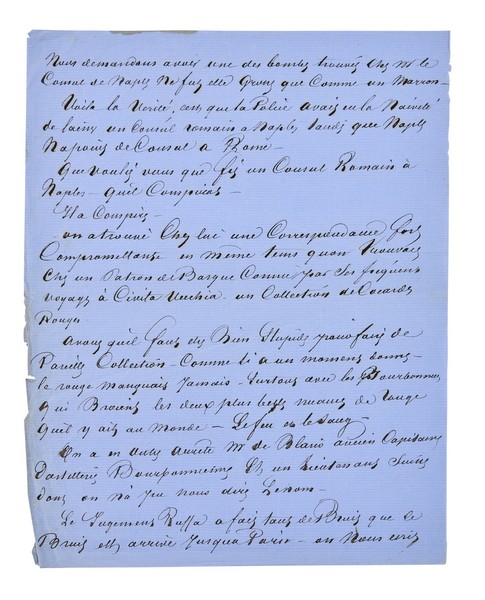 Nous demandons avoir une des bombes trouvés chez Mr le
Consul de Naples Ne fuse elle grosse que comme un Marron —
Voila la Verité, c'es que la Police avais eu la Naiveté
de laissé un Consul romain a Naples tandis que Naples
Na pas de Consul a Rome —
Que vouliez vous que fis un Consul Romain à
Naples — quil Conspiras —
Il a Conspiré —
on a trouvé Chez lui une Correspondance fors
Compromettante en même tems quon trouvais
Chez un Patron de Barque Connu par ses fréquens
voyages à Civita Vecchia un Collection de Cocardes
Rouges
avoues quil faus etre Bien Stupide pour faire de
Pareilles Collection — Comme si a un momens donné
le rouge manquais Jamais — Surtous avec les Bourbonnes
qui Broient les deux plus belles nuances de rouge
quil y ais au Monde — Le feu et le sang —
On a en outre arreté Mr de Blasio ancien Capitaine
dartillerie Bourbonnienne Et un Lieutenant Suisse
dons on na peu nous dire Le nom —
Le Jugement Ruffa a fais tans de Bruis que le
Bruis est arrivé Jusqua Paris — on Nous ecris